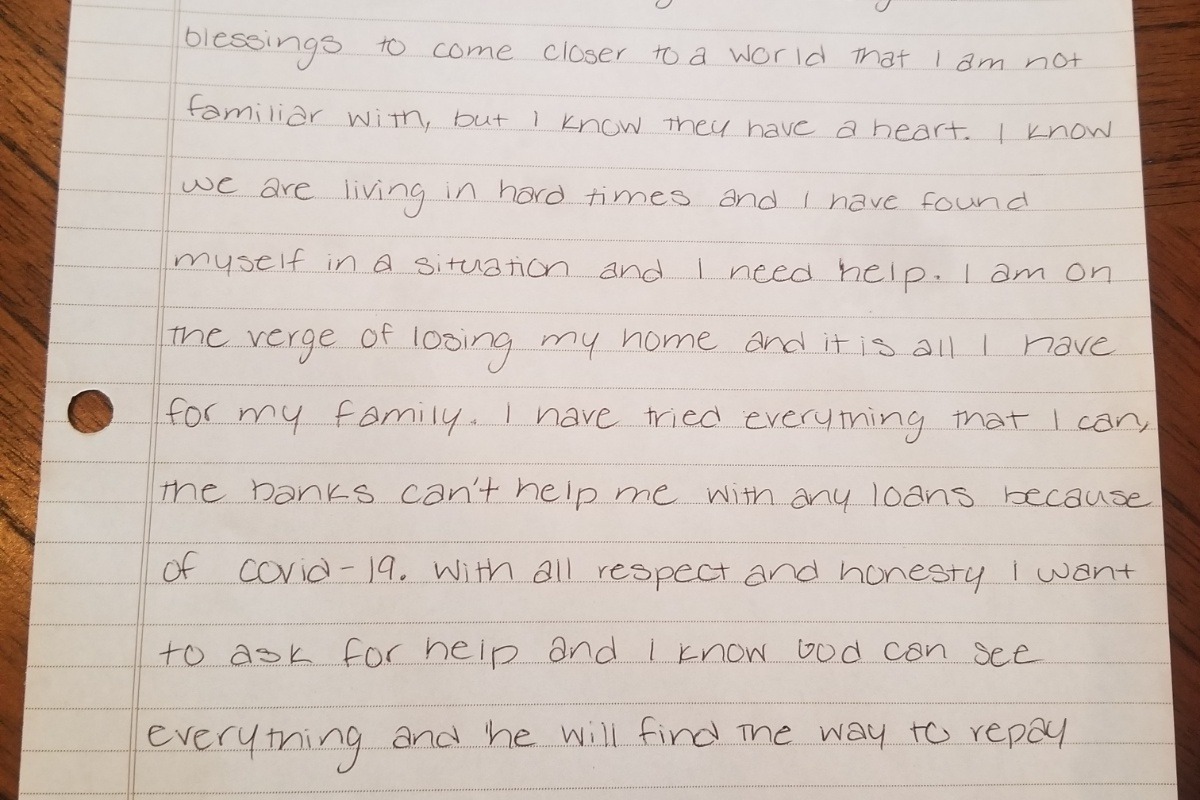 blessings to come closer to a world that I am not
familiar with, but I know they have a heart. I know
we are living in hard times and I have found
myself in a situation and I need help. I am on
the verge of losing my home and it is all I have
for my family. I have tried everything that I can,
the banks can't help me with any loans because
of covid-19. With all respect and honesty I want
to ask for help and I know God can see
everything and he will find the way to repay